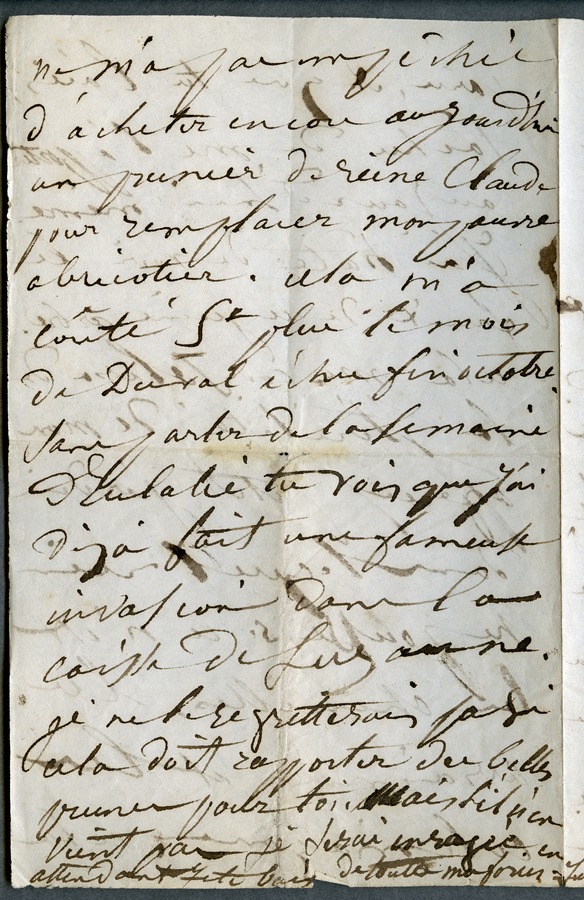 ne m'a pas empéchée
d'acheter encore aujourdhui
un prunier de reine Claude
pour remplacer mon pauvre
abricotier. cela m'a
couté 5 fr plus le mois
de Duval échu fin octobre
sans parler de la semaine
d'Eulalie tu vois que j'ai
déjà fait une fameuse
invasion dans la
caisse de Suzanne.
je ne le regretterais pas si
cela doit rapporter des belles
prunes pour toi Mais s'il n'en
vient pas je serai enragée en
attendant je te baise de toute ma